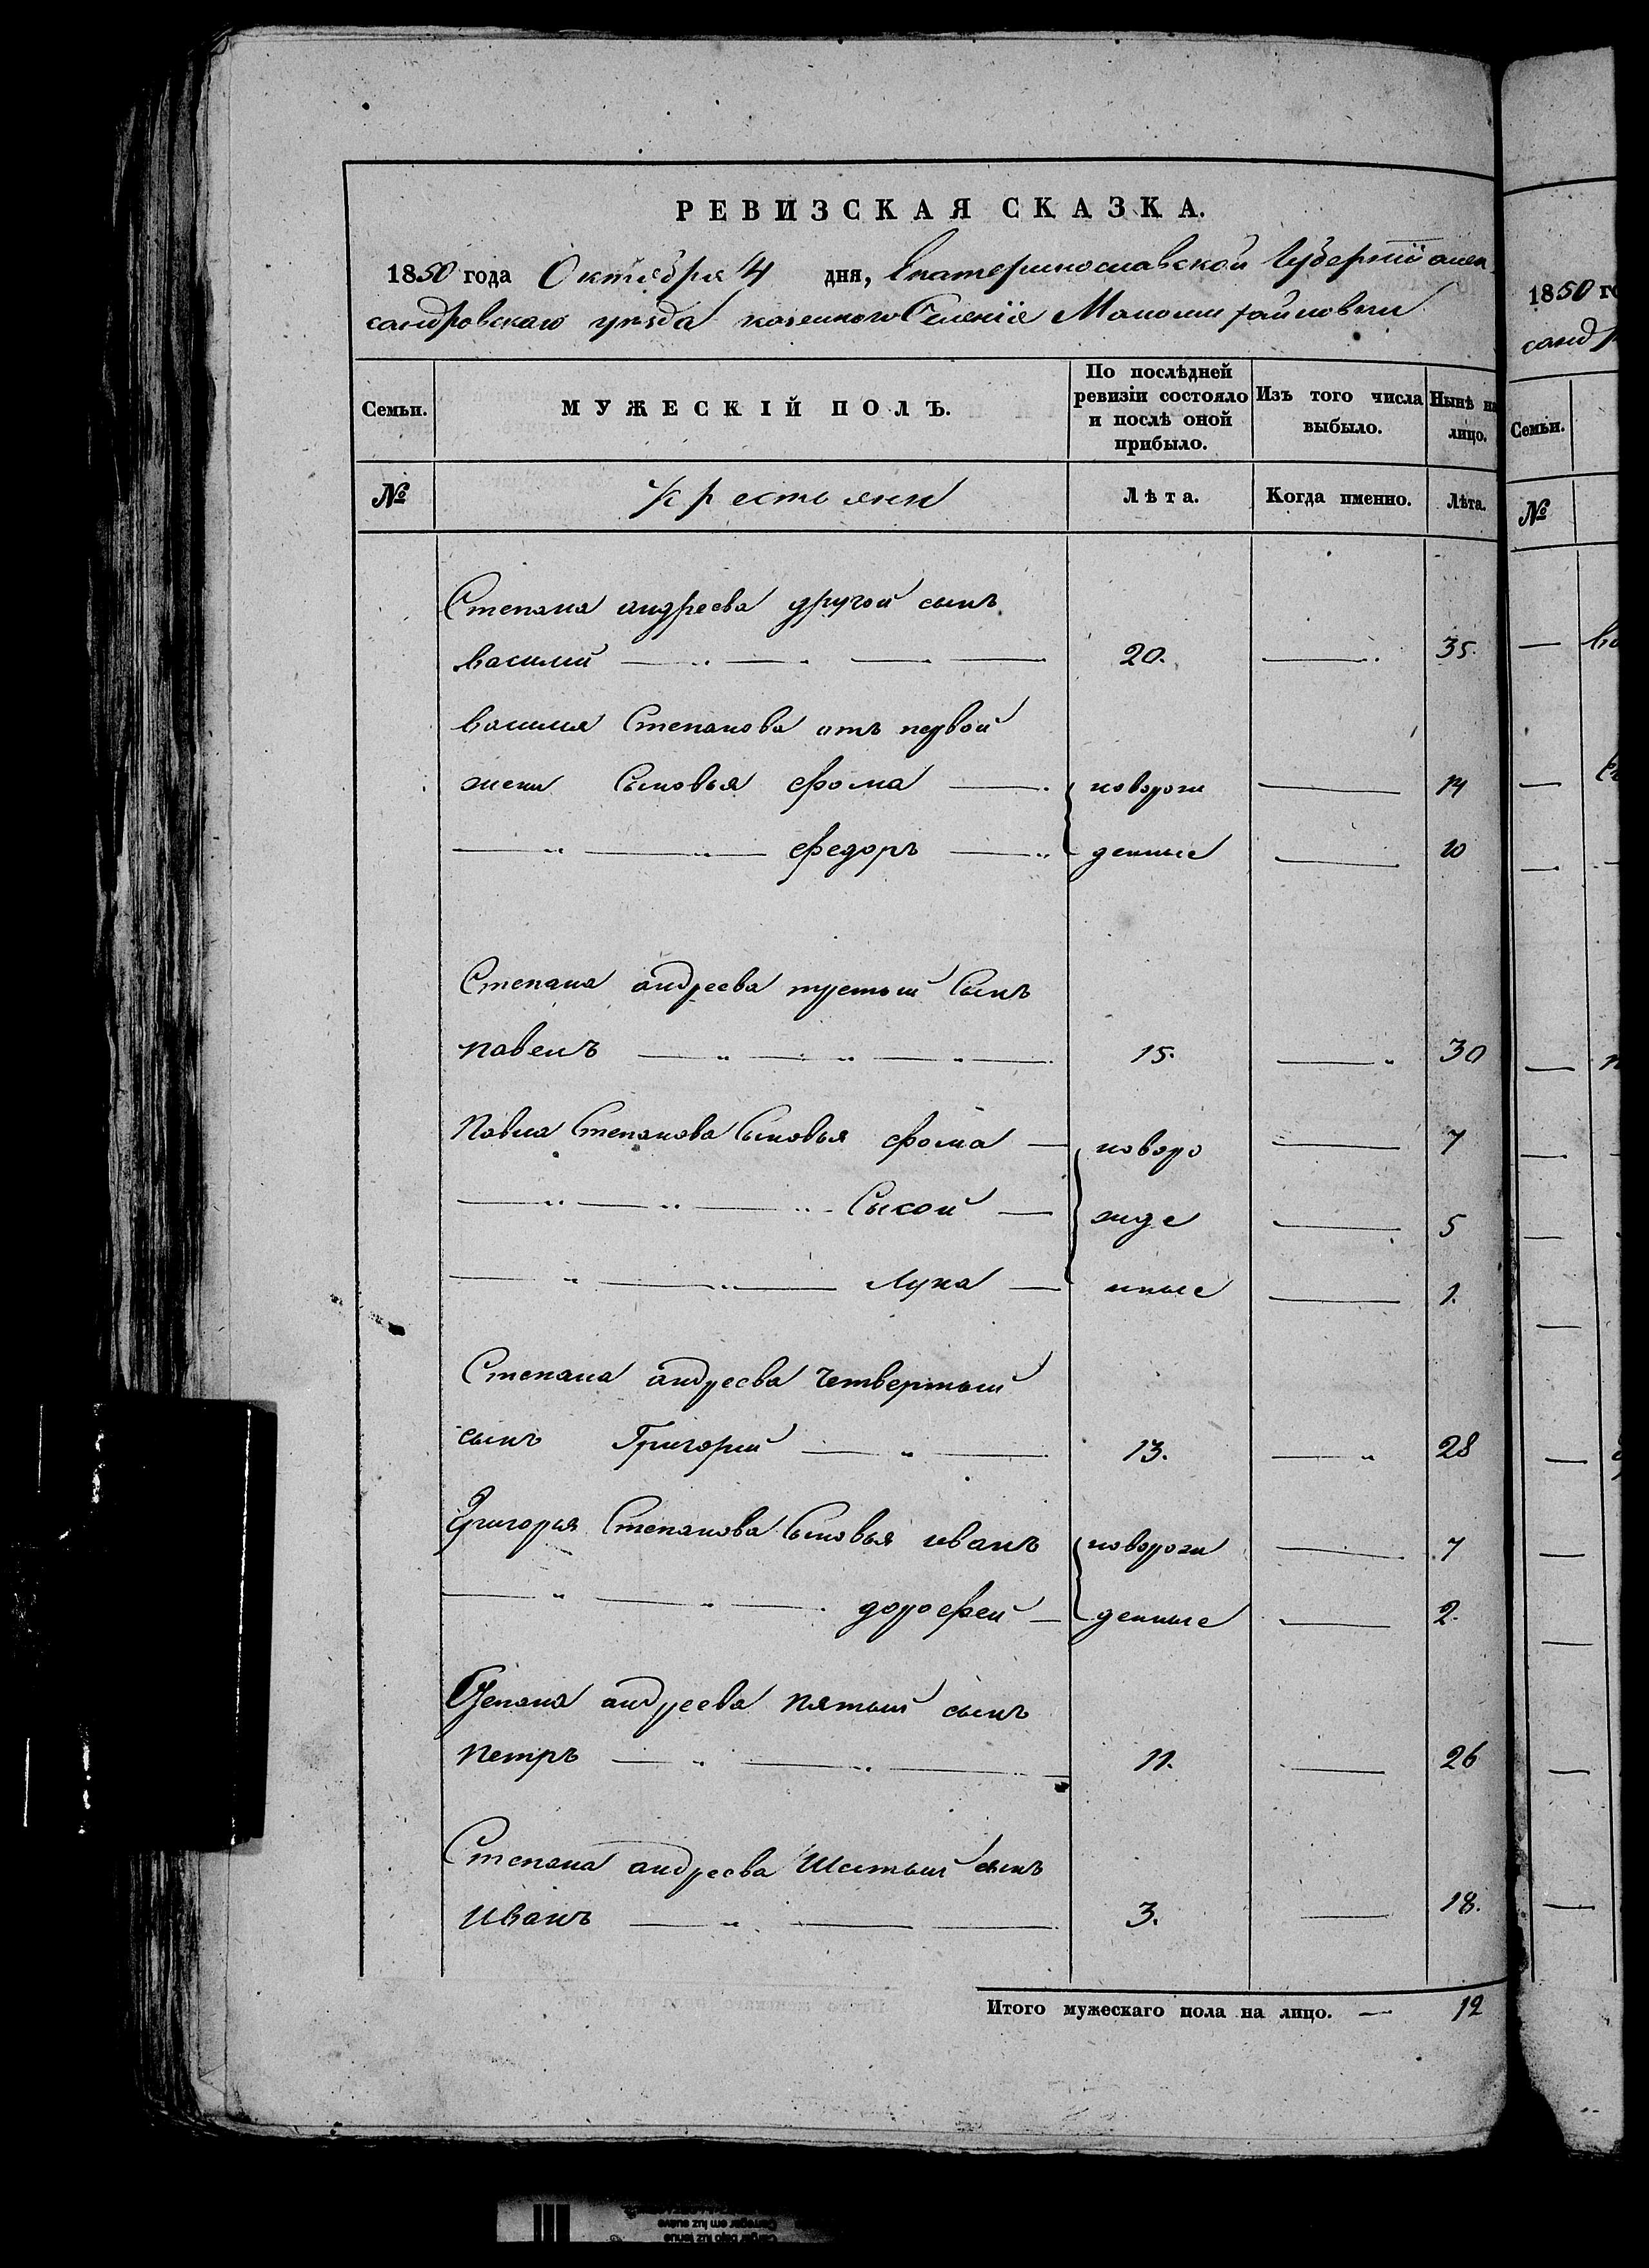 РЕВИЗСКАЯ СКАЗКА.
1850 года Октября 4 дня, Екатеринославской Губернiи алек
сандровскаго уѣзда казеннаго Селенiя Маломихайловки
Семьи.
МУЖЕСКІЙ ПОЛЪ.
По послѣдней ревизіи состояло и послѣ оной прибыло.
Изъ того числа выбыло.
Нынѣ на лицо.
№ крестьяни Лѣта. Когда именно. Лѣта.
Степана андреева другой сынъ
василий 20. 35.
василия Степанова отъ первой
жени Сыновья фома новорож 14
федоръ денные 10
Степана андреева третый Сынъ
павелъ 15. 30
Павла Степанова Сыновья фома новоро 7
Сысой жде 5
Лука нные 1.
Степана андреева Четвертый
сынъ Григорий 13. 28
Григорья Степанова Сыновья иванъ новорож 7
дорофей денные 2.
Степана андреева пятый сынъ
петръ 11. 26
Степана андреева Шестый сынъ
Иванъ 3. 18.
Итого мужескаго пола на лицо. — 12
1850 го
санд
Семьи.
№